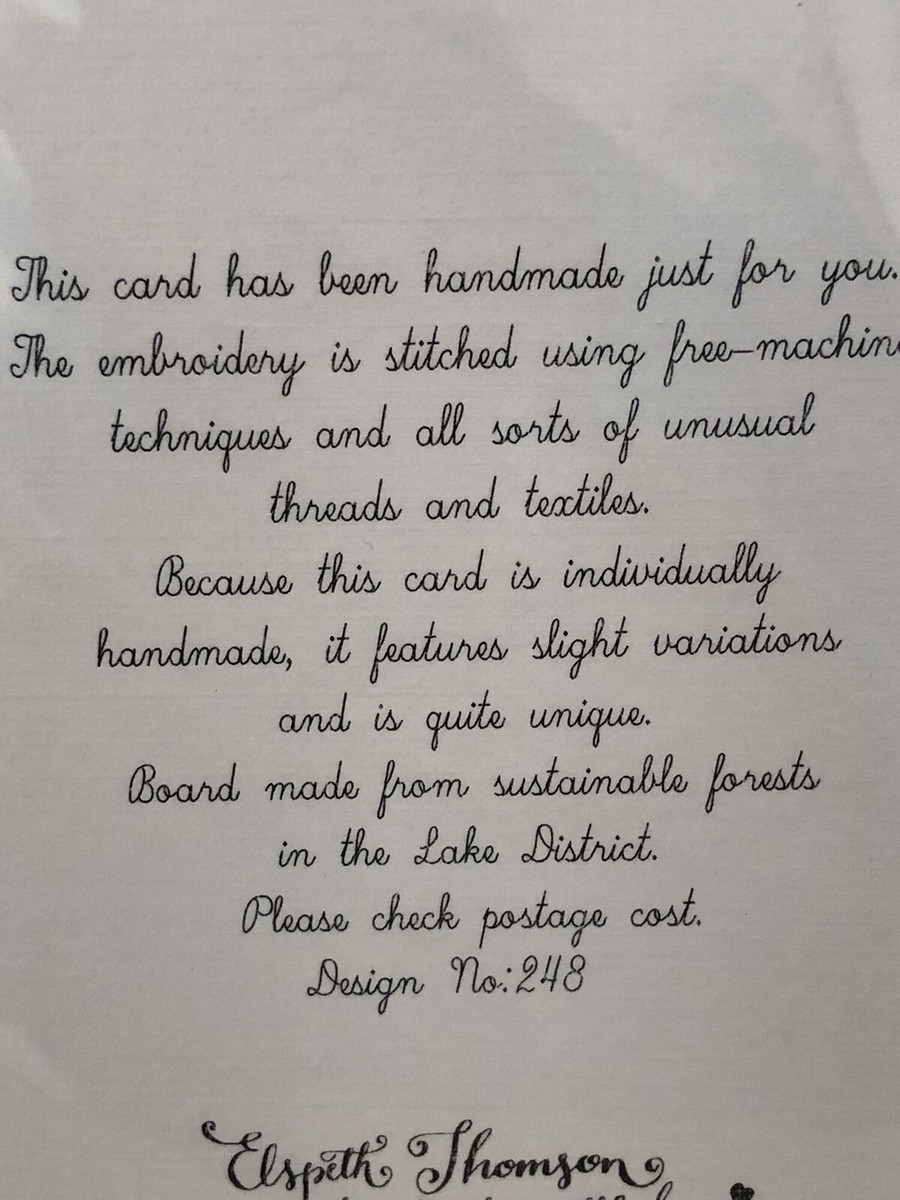 This card has been handmade just for you.
The embroidery is stitched using free-machin
techniques and all sorts of unusual
threads and textiles.
Because this card is individually
handmade, it features slight variations
and is quite unique.
Board made from sustainable forests
in the Lake District.
Please check postage cost.
Design No:248
Elspeth Thomson